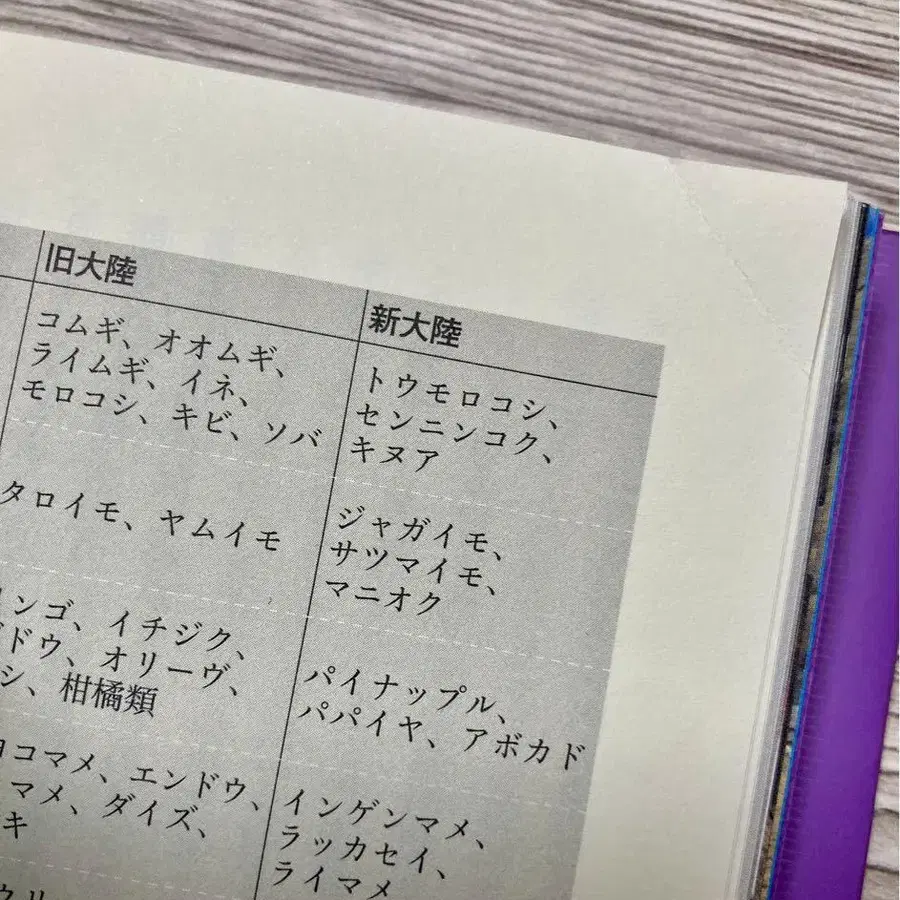 旧大陸
新大陸
コムギ、オオムギ、
ライムギ、イネ、
モロコシ、キビ、ソバ
トウモロコシ、
センニンコク、
キヌア
タロイモ、ヤムイモ
ジャガイモ、
サツマイモ、
マニオク
リンゴ、イチジク、
ブドウ、オリーヴ、
シ、柑橘類
パイナップル、
パパイヤ、アボカド
ヨコマメ、エンドウ、
マメ、ダイズ、
キ
インゲンマメ、
ラッカセイ、
ライマメ
ウリ